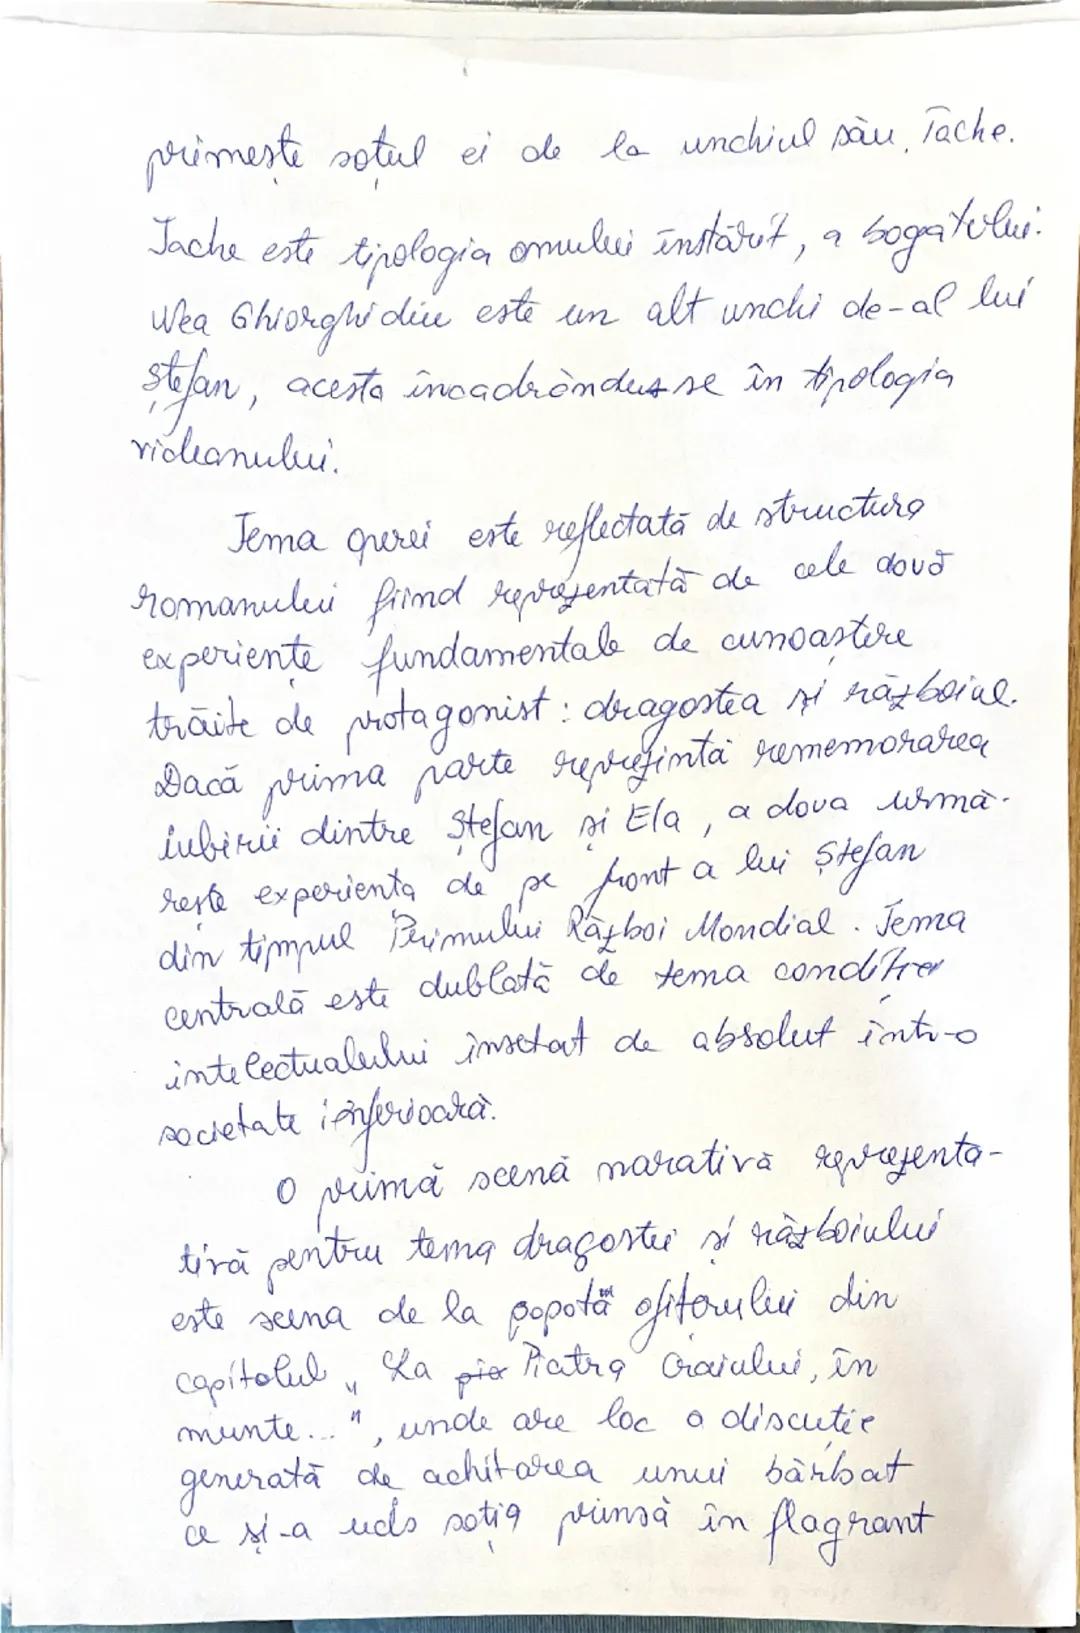 primește soțul ei de la unchiul său, Tache.
Tache este tipologia omului înstărit, a bogatului.
Nea Ghiorghidiu este un alt unchi de-al lui
Ștefan, acesta încadrându-se în tipologia
Tema operei este reflectată de structura
romanului fiind reprezentată de cele două
experiențe fundamentale de cunoaștere
trăite de protagonist: dragostea și războiul.
Dacă prima parte reprezintă rememorarea
iubirii dintre Ștefan și Ela, a doua urmă-
rește experiența de pe front a lui Ștefan
din timpul Primului Război Mondial. Tema
centrală este dublată de tema condiției
intelectualului însetat de absolut într-o
societate inferioară.
O primă scenă narativă reprezenta-
tivă pentru tema dragostei și războiului
este scena de la popota ofițerului din
capitolul „La Piatra Craiului, în
munte...", unde are loc o discuție
generată de achitarea unui bărbat
ce și-a ucis soția prinsă în flagrant